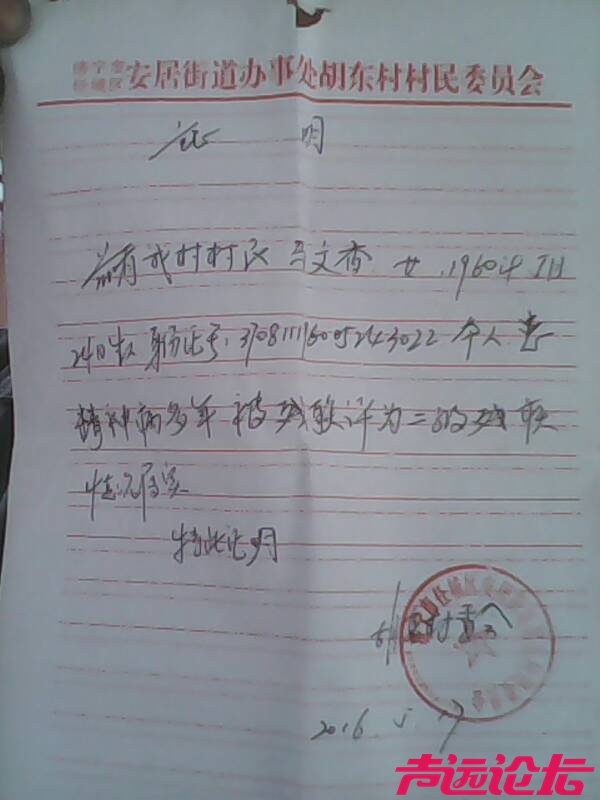 济宁市
任城区 安居街道办事处胡东村村民委员会
证 明
兹有我村村民 马文香 女,1960年5月
24日生人 身份证号:370811196005243022 个人患
精神病多年 被残联评为二级残疾
情况属实
特此证明
胡东村委会
2016.5.17
声远论坛